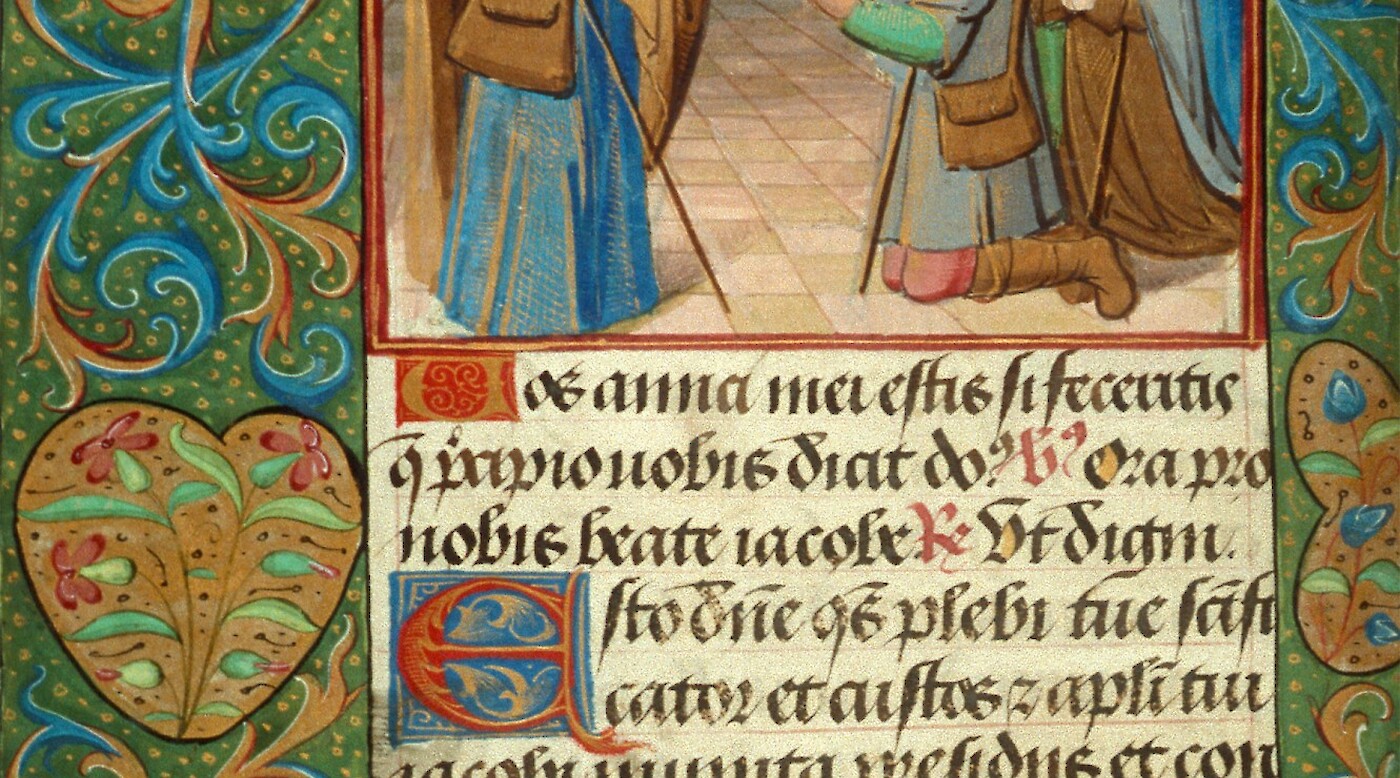 Vos amici mei estis si feceritis
q̄ precipio vobis dicit dn̄s. V̄. Ora pro
nobis beate iacobe Re Vt digni.
Esto dn̄e qs̄ plebi tue scīfi
cator et custos ⁊ apl̄i tui
iacobi munita presidiis et con